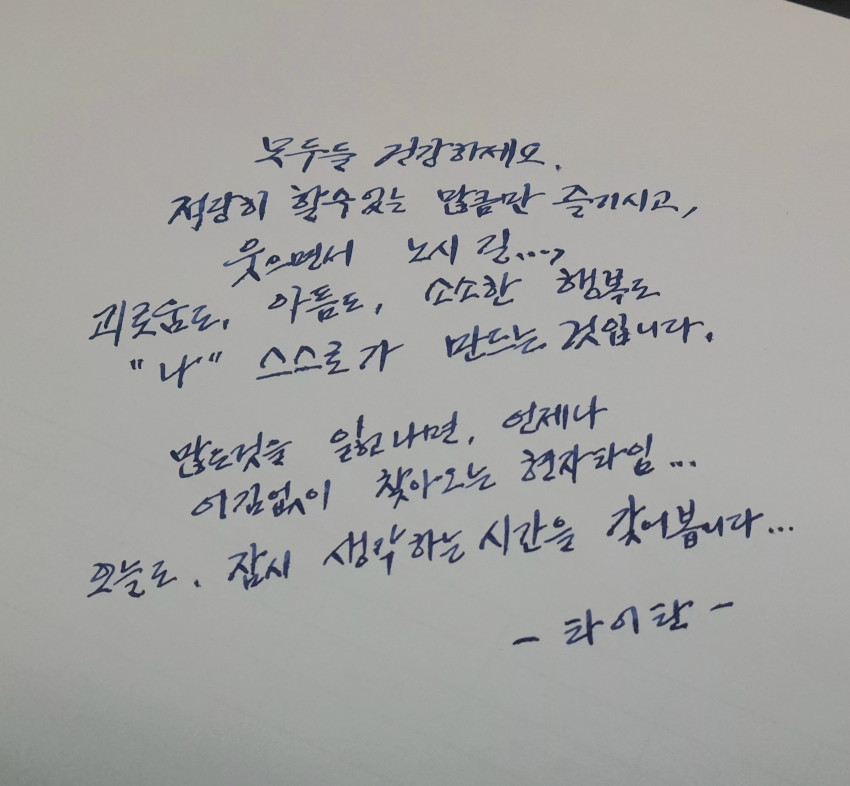 모두들 건강하세요.
적당히 할수있는 많큼만 즐기시고,
웃으면서 노시 길...,
괴로움도, 아픔도, 소소한 행복도
"나" 스스로가 만드는 것입니다.
많은것을 잃고나면, 언제나
어김없이 찾아오는 현자타임...
오늘도, 잠시 생각하는 시간을 갖어봅니다...
- 타이탄 -